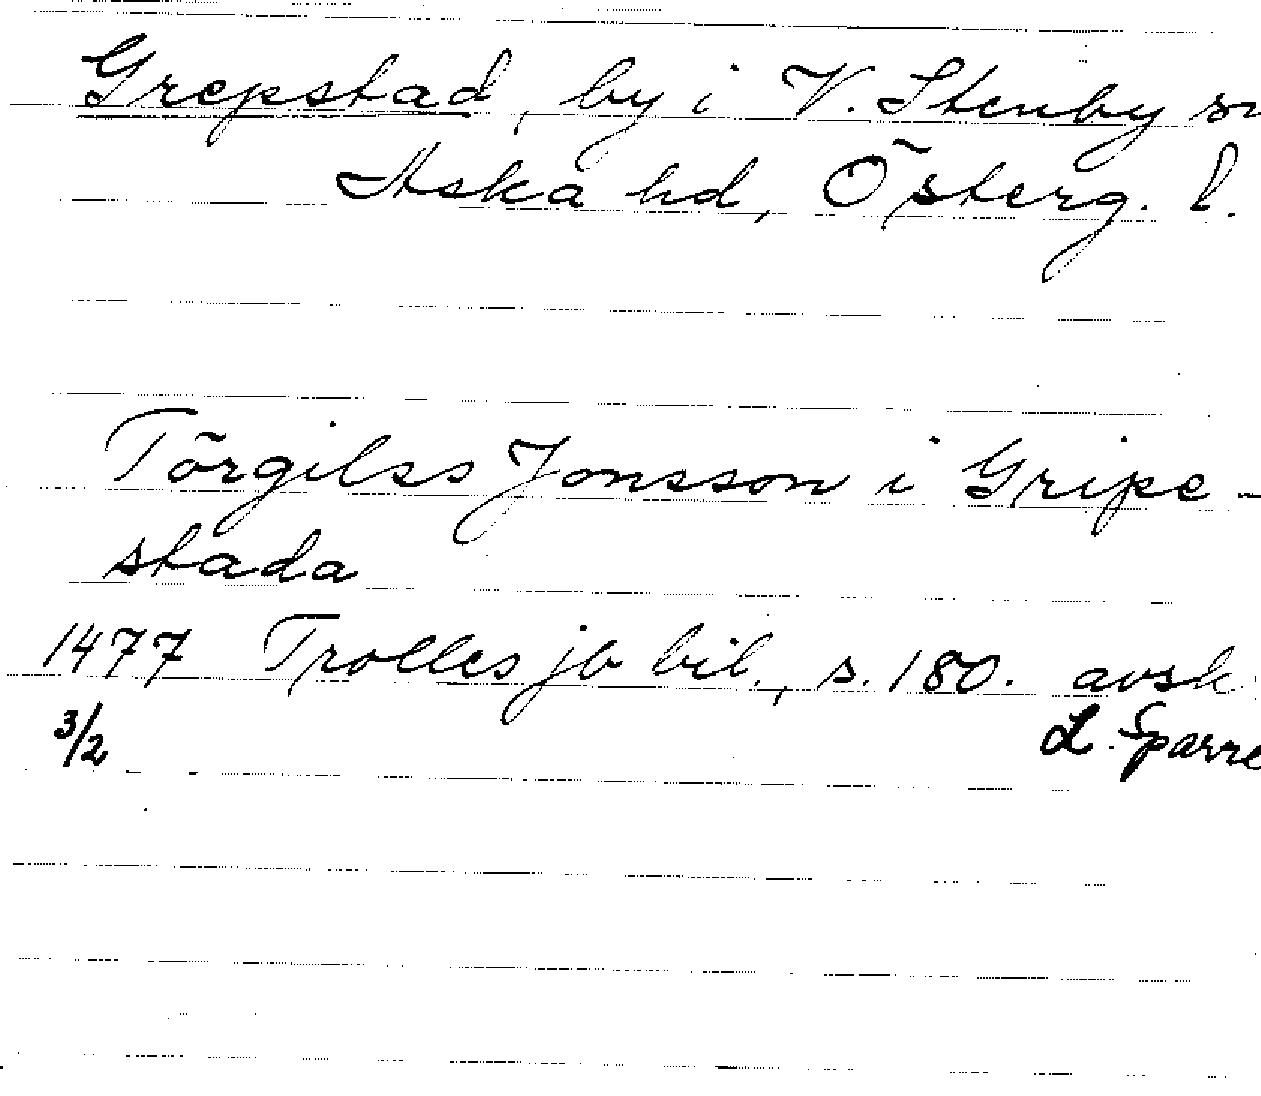 Grepstad, by i V. Stenby sn
Aska hd, Österg. l.
Törgilss Jonsson i Gripe-
stada
1477 Trolles jb bil., s. 180. avsk.
3/2 L. Sparre